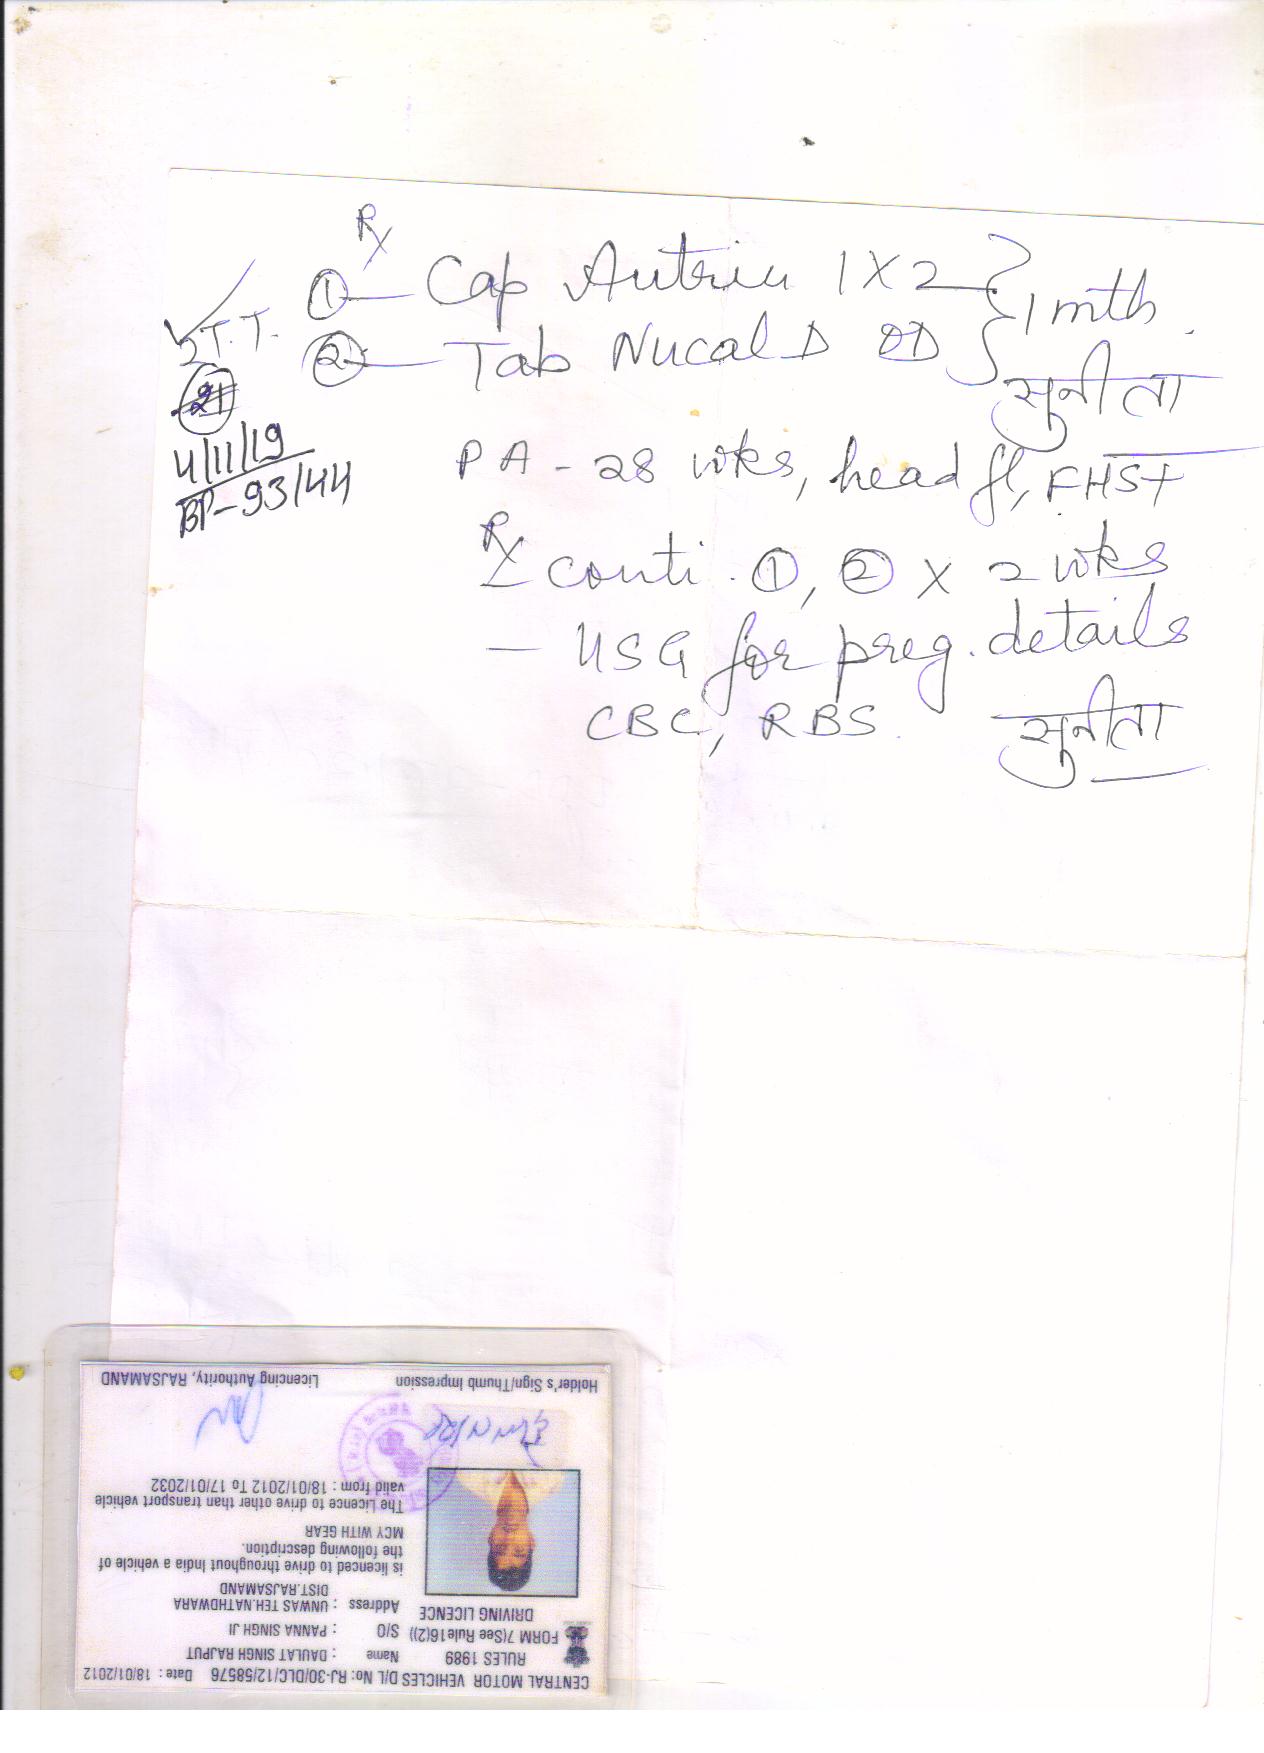 Rx
① Cap Autrin 1 X 2
② Tab Nucal D OD
1 mth.
सुनीता
2 T.T.
4/11/19
BP-93/44
PA - 28 wks, head fl, FHS+
Rx
conti. ①, ② X 2 wks
— USG for preg. details
CBC, RBS.
सुनीता
CENTRAL MOTOR VEHICLES D/L No: RJ-30/DLC/12/58576 Date : 18/01/2012
RULES 1989
FORM 7(See Rule16(2))
DRIVING LICENCE
Name : DAULAT SINGH RAJPUT
S/O : PANNA SINGH JI
Address : UNWAS TEH.NATHDWARA
DIST.RAJSAMAND
is licenced to drive throughout India a vehicle of
the following description.
MCY WITH GEAR
The Licence to drive other than transport vehicle
valid from : 18/01/2012 To 17/01/2032
Holder's Sign/Thumb Impression
Licencing Authority, RAJSAMAND